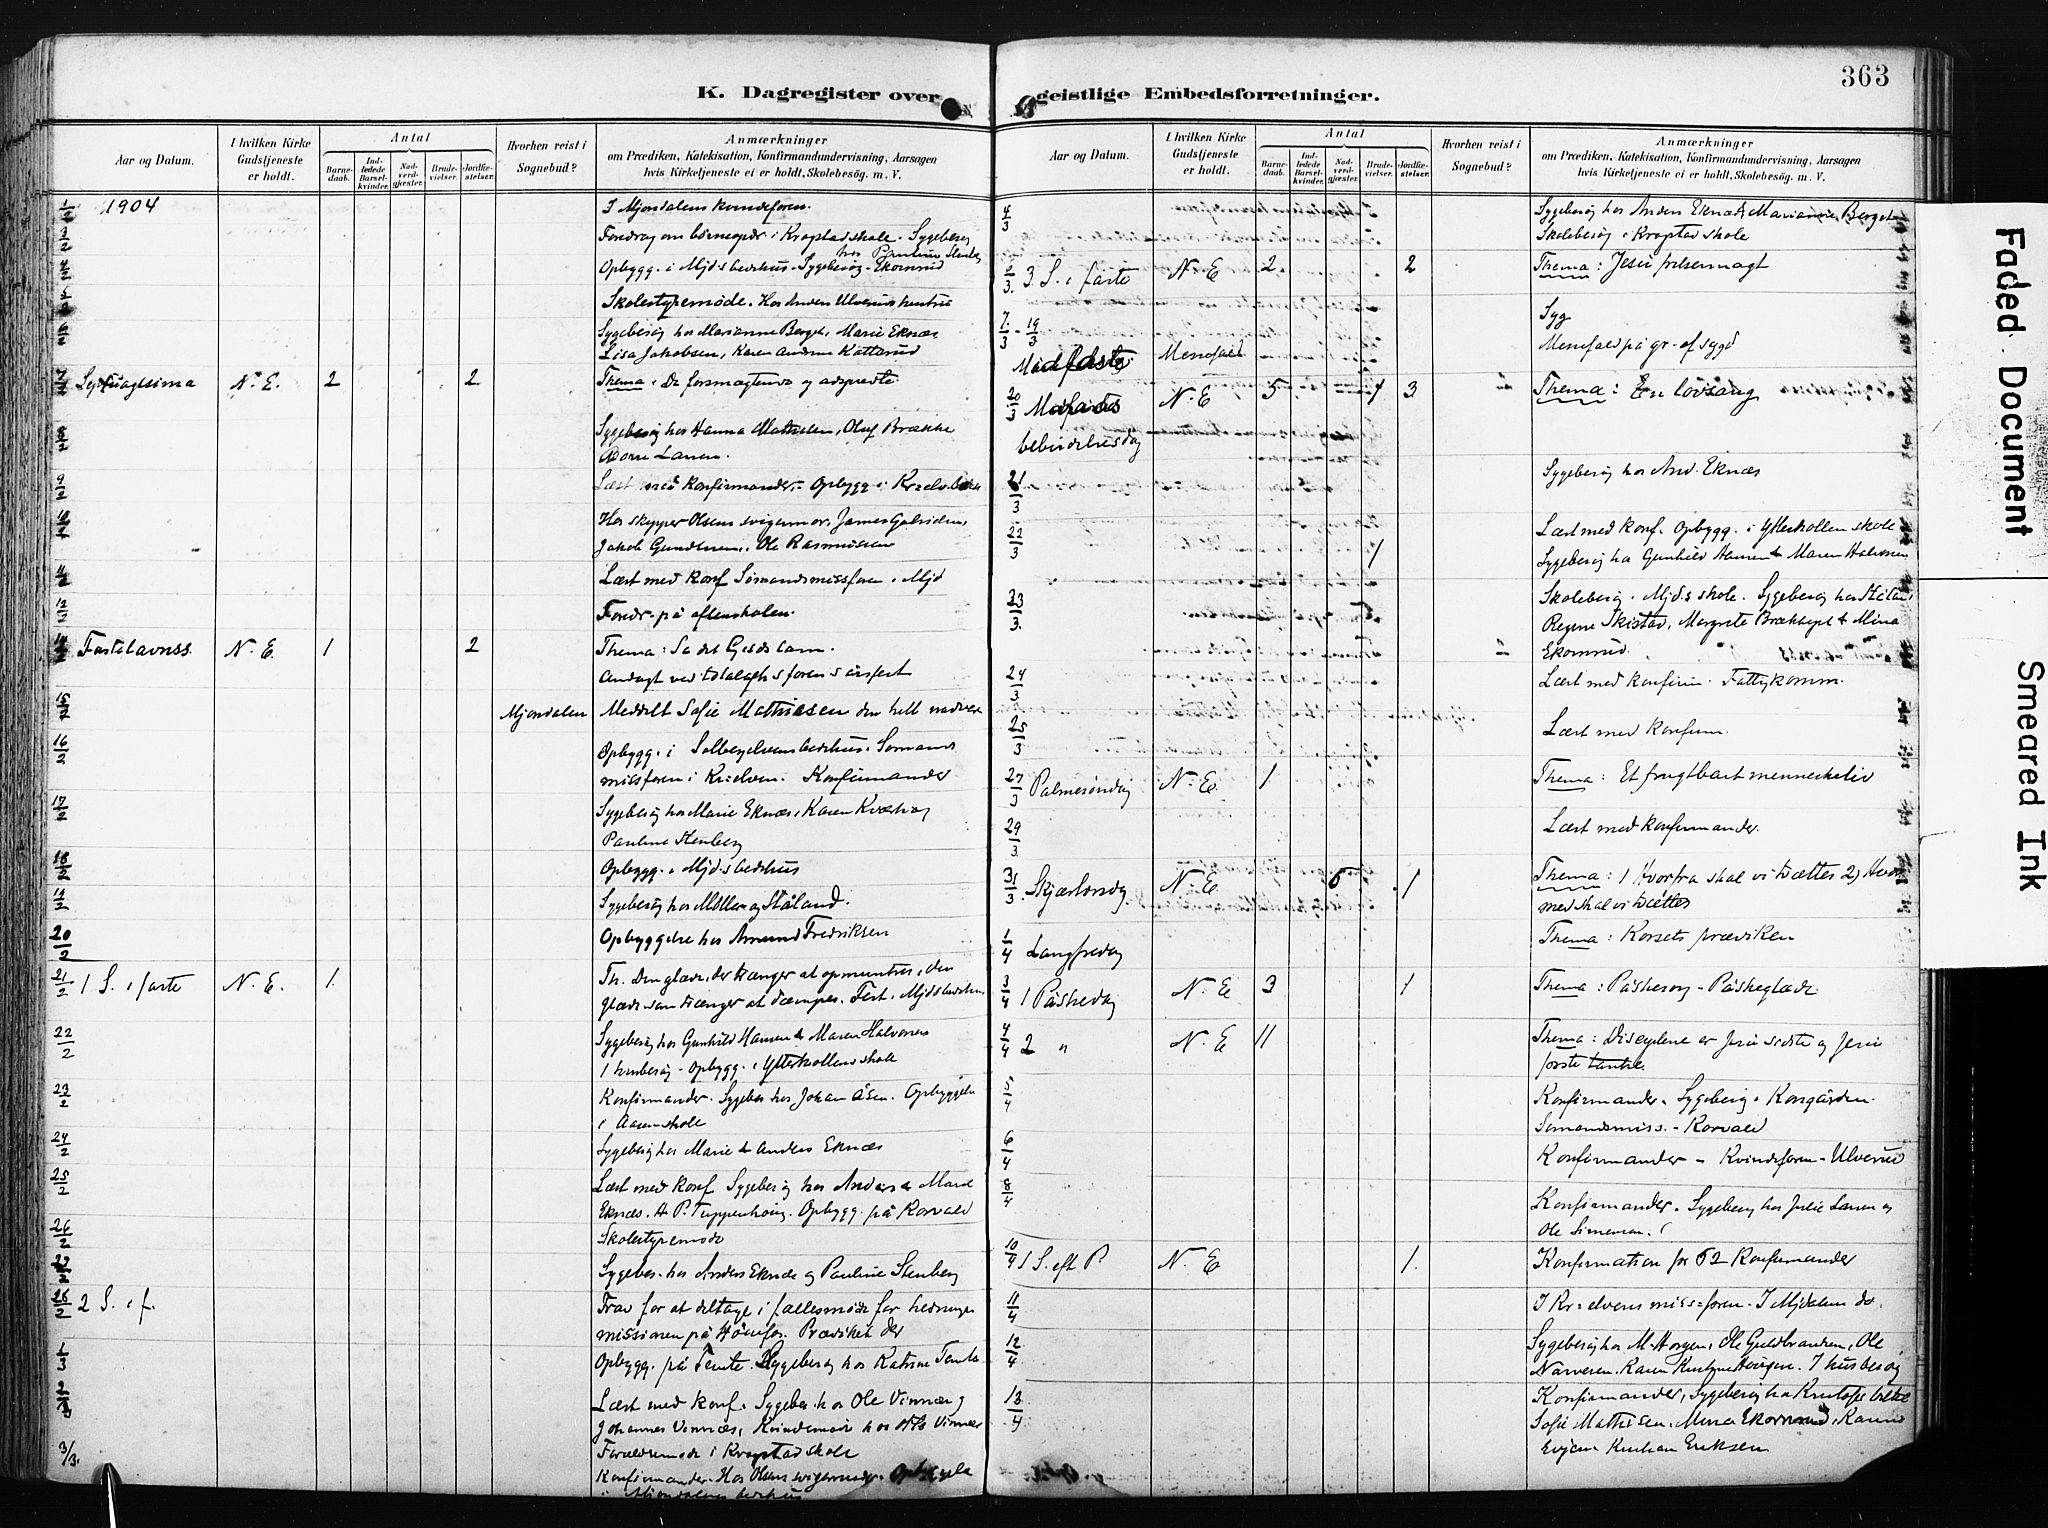 363
K. Dagregister over geistlige Embedsforretninger.
Aar og Datum.
I hvilken Kirke Gudstjeneste er holdt.
Antal
Barnedaab.
Indledede Barselkvinder.
Nadverdgjæster.
Brudevielser.
Jordfæstelser.
Hvorhen reist i Sognebud?
Anmærkninger
om Prædiken, Katekisation, Konfirmandundervisning, Aarsagen
hvis Kirketjeneste ei er holdt, Skolebesøg. m. V.
1/2 1904 I Mjøndalens kvindeforen.
3/2 Foredrag om børneopdr i Krogstad skole. Sygebesøg
hos Pauline Stenberg
4/2 Opbygg. i Mjds bedehus - Sygebesøg - Ekornrud
Skolestyremøde. Hos Anders Ulveruds hustru
Sygebesøg hos Marianne Berget, Marie Eknæs
Lisa Jakobsen, Karen Andrine Katterud
7/2 N. E. 2 2 Thema: De forsmægtende og adspredte.
8/2 Sygebesøg hos Hanna Mathilsen, Oluf Brække
Larsen.
9/2 Læst med konfirmander. Opbygg i
10/2 Hos skipper Olsens svigermor, James
Jakob Gundersen, Ole Rasmussen
11/2 Læst med konf Sømandsmissforen i Mjd
12/2 Foredr. på aftenskolen.
14/2 Fastelavnss. N. E. 1 2 Thema: Se det Guds lam.
Andagt ved totalafhs forens årsfest
15/2 Mjøndalen Meddelt Sofie Mathiasen den hell nadvere
16/2 Opbygg. i Solbergelvens bedehus. Sømands
missforen i Kr.elven. Konfirmander
17/2 Sygebesøg hos Marie Eknæs, Karen
Pauline Stenberg
18/2 Opbygg. i Mjds bedehus
19/2 Sygebesøg hos Møller og Ståland.
20/2 Opbyggelse hos Amund Fredriksen
21/2 1 S. i faste N. E. 1. Th. Den glæde, der trænger at opmuntres, den
glæde som trænger at dæmpes. Fest i Mjds bedehus
22/2 Sygebesøg hos Gunhild Hansen & Maren Halvorsen
1 husbesøg - Opbygg. i Ytterkollens skole
23/2 Konfirmander. Sygebes hos Johan Åsen. Opbyggelse
i Aasen skole
24/2 Sygebesøg hos Marie & Anders Eknæs
25/2 Læst med konf Sygebesøg hos Anders & Marie
Eknæs. A. P. Opbygg. på Korvald
26/2 Skolestyremøde
Sygebes. hos Anders Eknæs og Pauline Stenberg
28/2 2 S. i f. Frav for at deltage i fællesmøde for hedninge
missionen på Hønefos. Prædiket der
1/3 Opbygg. på Temte. Sygebesøg hos Katrine Temte
2/3 Læst med konf. Sygebes. hos Ole Vinnæs
Johannes Vinnæs, Kvindemøde hos Vinnæs
Forældremøde i Krogstad skole
3/3. Konfirmander. Hos Olsens svigermor. Opbyggelse
i Mjøndalens bedehus
Aar og Datum.
I hvilken Kirke Gudstjeneste er holdt.
Antal
Barnedaab.
Indledede Barselkvinder.
Nadverdgjæster.
Brudevielser.
Jordfæstelser.
Hvorhen reist i Sognebud?
Anmærkninger
om Prædiken, Katekisation, Konfirmandundervisning, Aarsagen
hvis Kirketjeneste ei er holdt, Skolebesøg. m. V.
4/3 Sygebesøg hos Anders Eknæs, Marianne Berget
Skolebesøg i Krogstad skole
3 S. i faste N. E 2 2 Thema: Jesu frelsermagt
7/3 - 19/3 Syg
Messefald Messefald på gr. af sygd
20/3 N. E 5 3 Thema: En lovsang
bebudelsesdag
21/3 Sygebesøg hos And. Eknæs
22/3 1 Læst med konf. Opbygg. i Ytterkollen skole
Sygebesøg hos Gunhild Hansen & Maren Halvorsen
23/3. Skolebesøg i Mjds skole. Sygebesøg hos
Regine Skistad, Margrete & Mina
Ekornrud
24/3 Læst med konfirm. Fattigkomm.
25/3 Læst med konfirm.
27/3 Palmesøndag N. E. 1 Thema: Et frugtbart menneskeliv
29/3 Læst med konfirmander.
31/3 Skjærtorsdag N. E 6 1 Thema: 1 Hvorfra skal vi tvættes 2) Hvor
med skal vi tvættes
1/4 Langfredag Thema: Korsets prædiken
3/4 1 Påskedag N. E 3 1 Thema: Påskesorg - Påskeglæde
4/4 2 " N. E 11 Thema: Disciplene er Jesu sidste og Jesu
første tanke.
5/4 Konfirmander. Sygebesøg i Korsgården.
Sømandsmiss. - Korvald
6/4 Konfirmander - Kvindeforen - Ulverud
8/4 Konfirmander. Sygebesøg hos Julie Larsen og
Ole Simensen.
10/4 1 S. eft P. N. E 1. Konfirmation for 52 Konfirmander
11/4 I Kr.elvens miss.foren. I Mjdalens do.
12/4 Sygebesøg hos M. Horgen, Ole Guldbrandsen, Ole
Narvesen. Karen Horgen. 7 husbesøg
13/4 Konfirmander, Sygebesøg hos
Sofie Mathisen, Mina Ekornrud, Karine
Eriksen
Faded Document
Smeared Ink